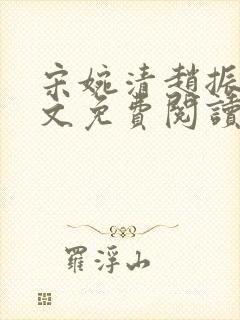 宋婉清趙振
文免費閱讀
羅浮山